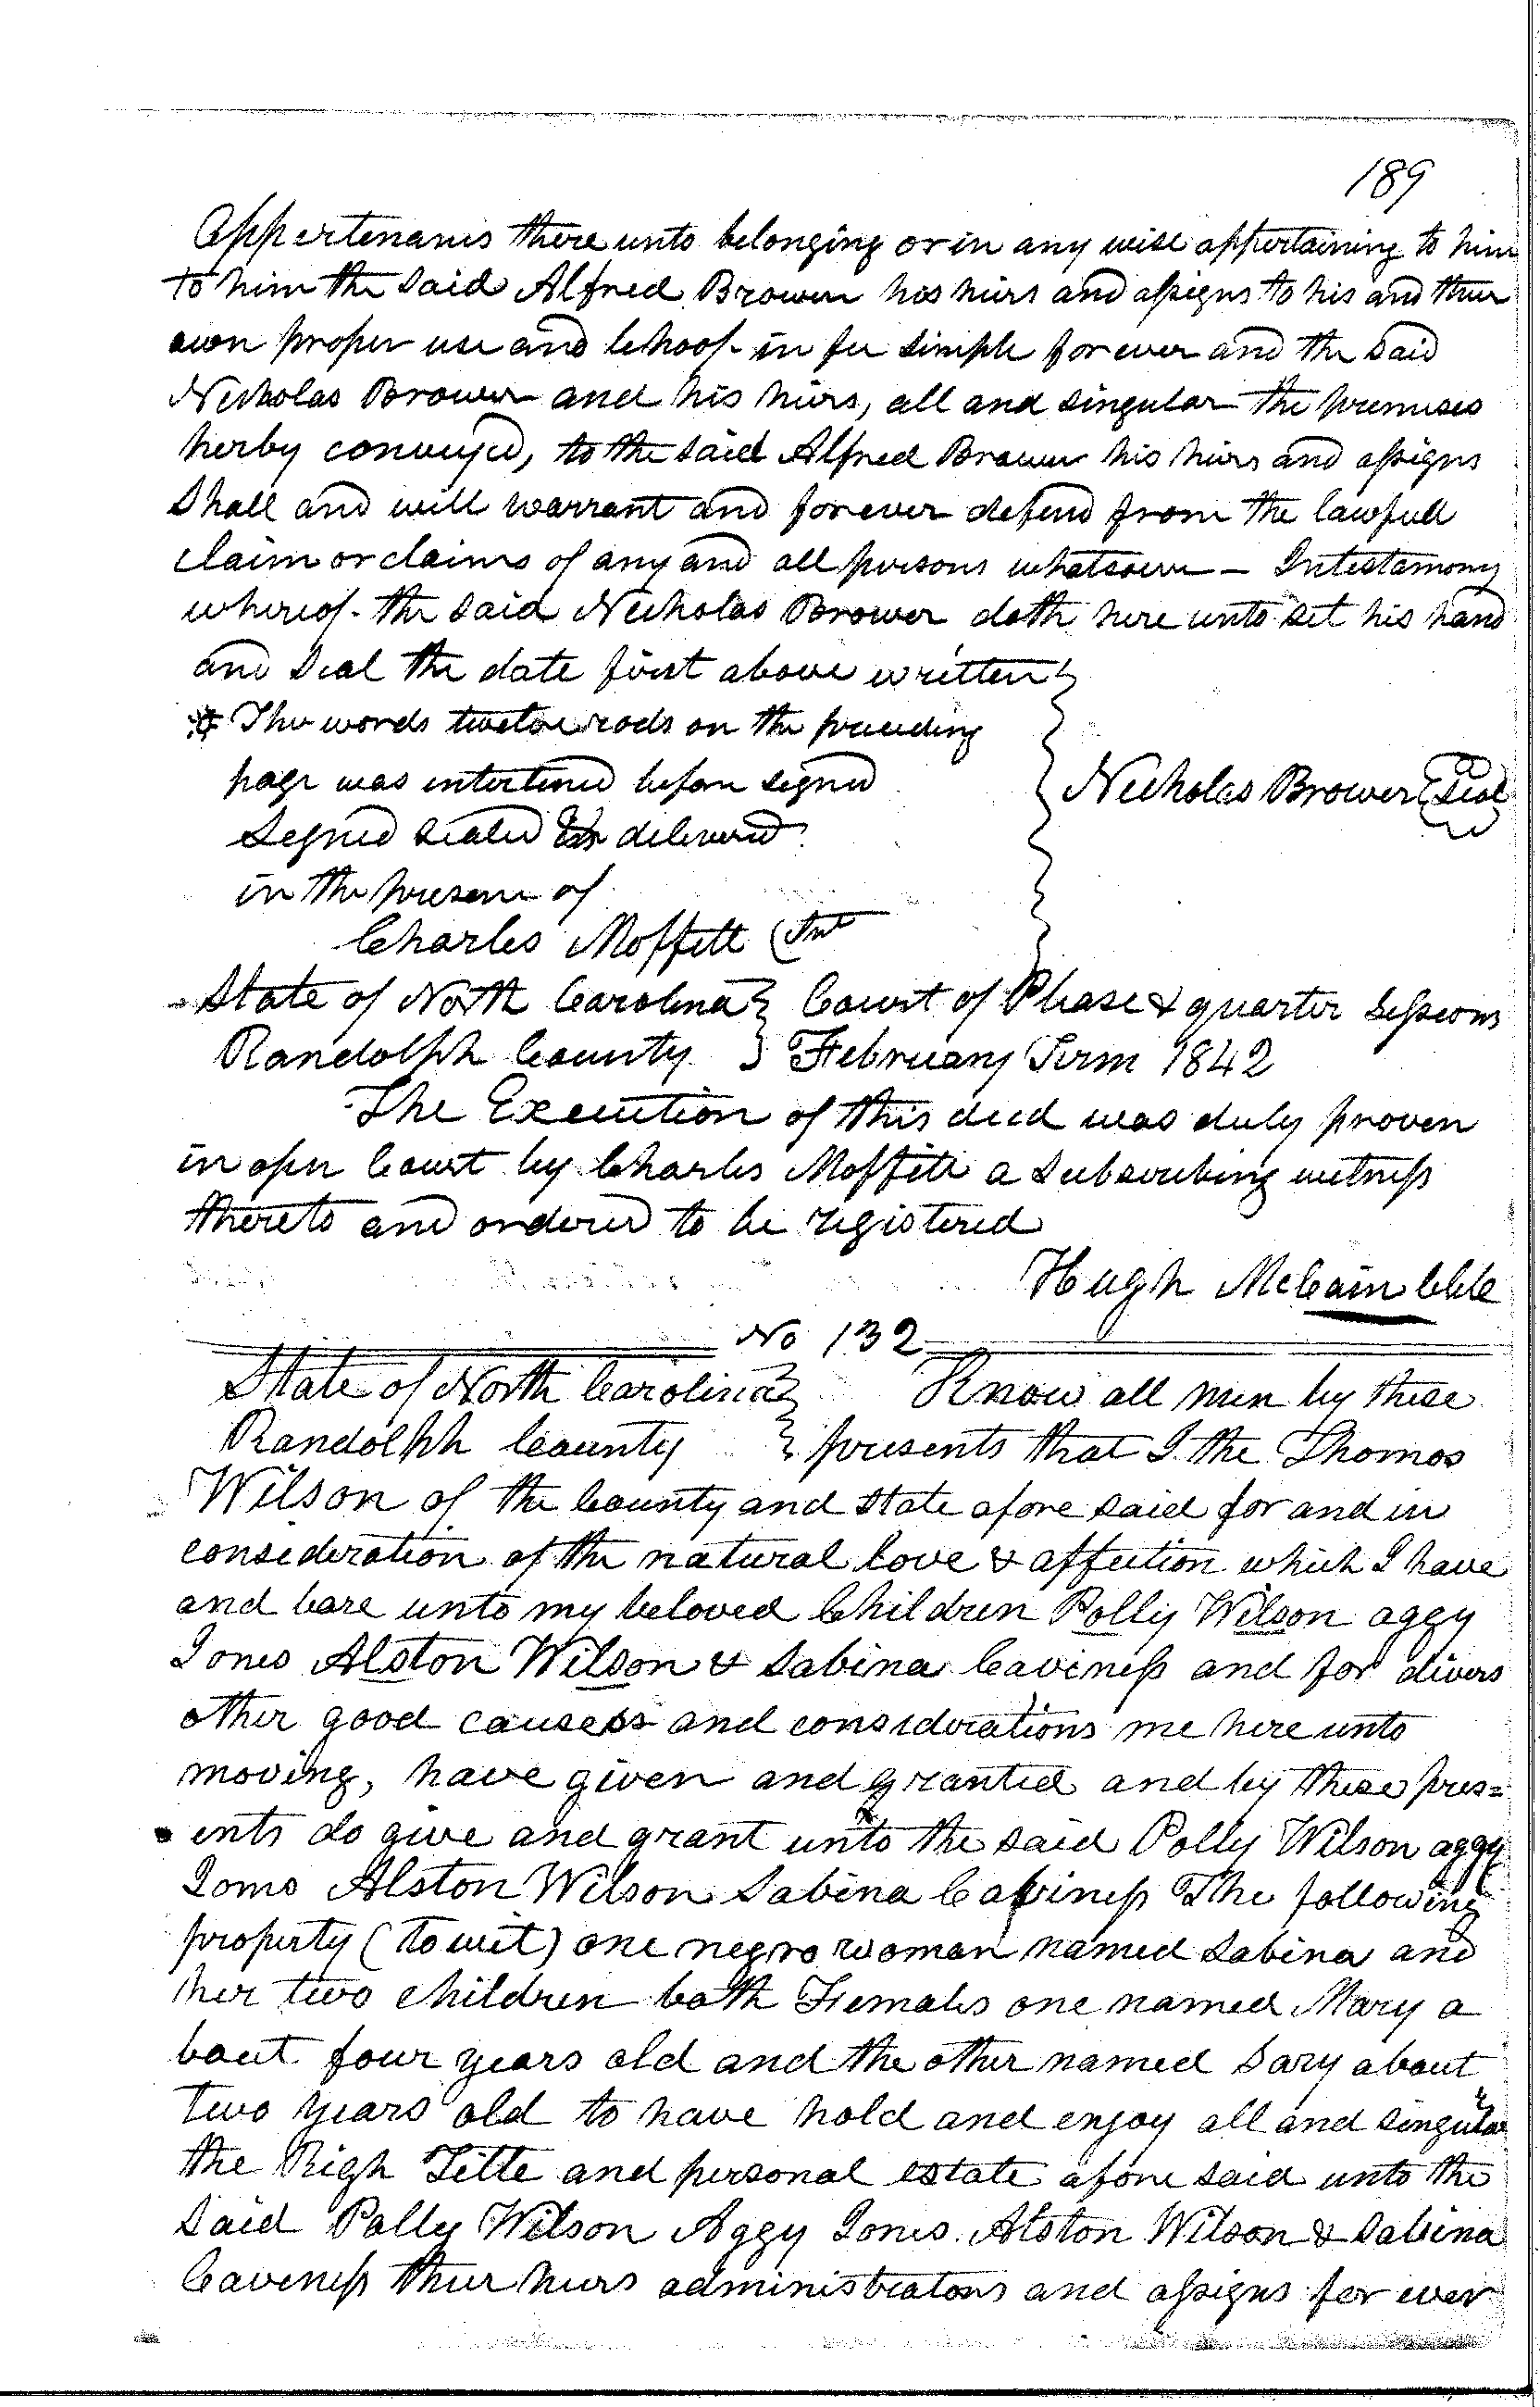 189
Appertenanis there unto belonging or in any wise appertaining to him
to him the said Alfred Brower his heirs and assigns to his and their
own proper use and behoof in fee simple forever and the said
Nicholas Brower and his heirs, all and singular the premises
herby conveyed, to the said Alfred Brower his heirs and assigns
Shall and will warrant and forever defend from the lawfull
claim or claims of any and all persons whatsoever — Intestamony
whereof the said Nicholas Brower doth here unto set his hand
and Seal the date first above written
The words twelve rods on the preceeding
page was interlined before signed
Signed sealed & delivered
in the presence of
Nicholas Brower Seal
Charles Moffitt Jur
State of North Carolina Court of Please & quarter Sessions
Randolph County February Term 1842
The Execution of this deed was duly proven
in open Court by Charles Moffitt a Subscribing witness
thereto and ordered to be registered
Hugh McCain Clk
No 132
State of North Carolina Know all men by these
Randolph County presents that I the Thomas
Wilson of the County and State afore said for and in
consideration of the natural love & affection which I have
and bare unto my beloved Children Polly Wilson aggy
Jones Alston Wilson & Sabina Caviness and for divers
other good causess and considerations me here unto
moving, have given and granted and by these pres=
ents do give and grant unto the said Polly Wilson aggy
Jones Alston Wilson Sabina Caviness The following
property (to wit) one negro woman named Sabina and
her two children both Females one named Mary a
bout four years old and the other named Sary about
two years old to have hold and enjoy all and singular
the Righ Title and personal estate afore said unto the
Said Polly Wilson Aggy Jones. Alston Wilson & Sabina
Caviness their heirs administrators and assigns for ever